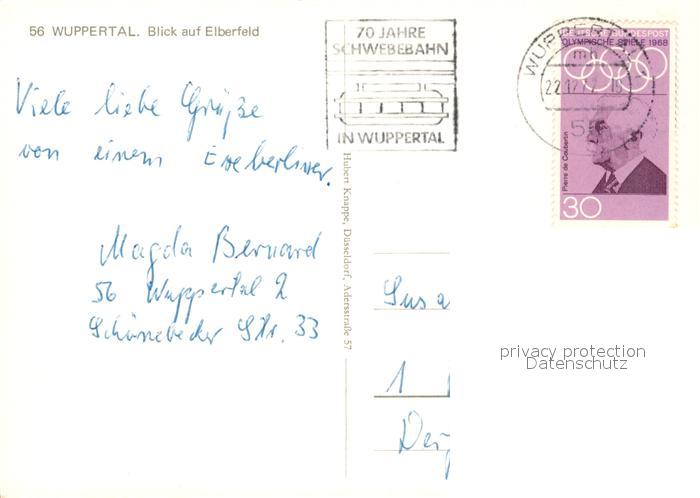 56 WUPPERTAL. Blick auf Elberfeld
70 JAHRE
SCHWEBEBAHN
IN WUPPERTAL
WUPPER
22.12.7
56
DEUTSCHE BUNDESPOST
OLYMPISCHE SPIELE 1968
Pierre de Coubertin
30
Viele liebe Grüße
von einem
Magda Bernard
56 Wuppertal 2
Schönebecker Str. 33
Hubert Knappe, Düsseldorf, Adersstraße 57
Susa
1
privacy protection
Datenschutz